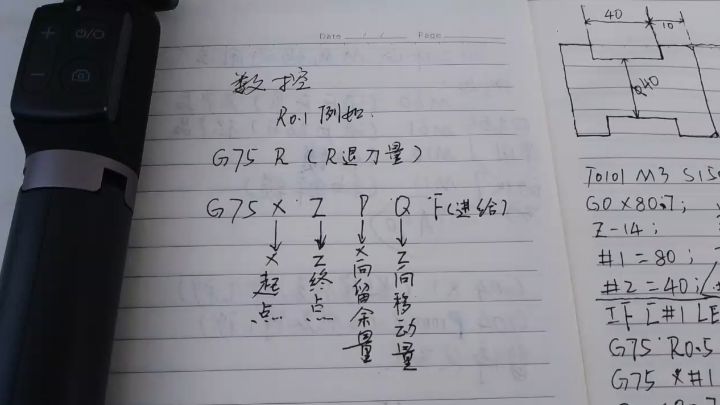 Date / / Page
数控
R0.1 例如.
G75 R (R退刀量)
G75 X Z P Q F(进给)
X起点
Z终点
X向留余量
Z向移动量
40
10
ø40
T0101 M3 S150
G0 X80.7;
Z-14;
#1=80;
#2=40;
IF [#1 LE
G75 R0.5
G75 X#1